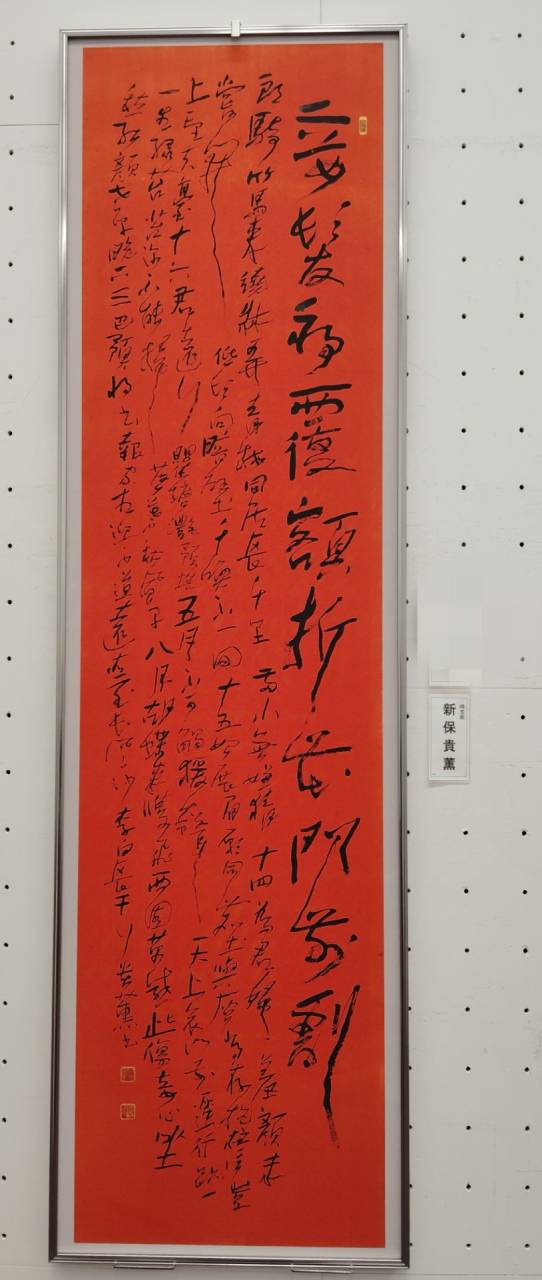 妾髪初覆額折花門前劇
郎騎竹馬来遶牀弄青梅同居長干里両小無嫌猜十四為君婦羞顔未
嘗開低頭向暗壁千喚不一回十五始展眉願同塵與灰常存抱柱信豈
上望夫臺十六君遠行瞿塘灔澦堆五月不可觸猿聲天上哀門前遲行跡一
一生緑苔苔深不能掃落葉秋風早八月胡蝶来雙飛西園草感此傷妾心坐
愁紅顔老早晩下三巴預将書報家相迎不道遠直至長風沙李白長干行貴薫書
新保貴薫